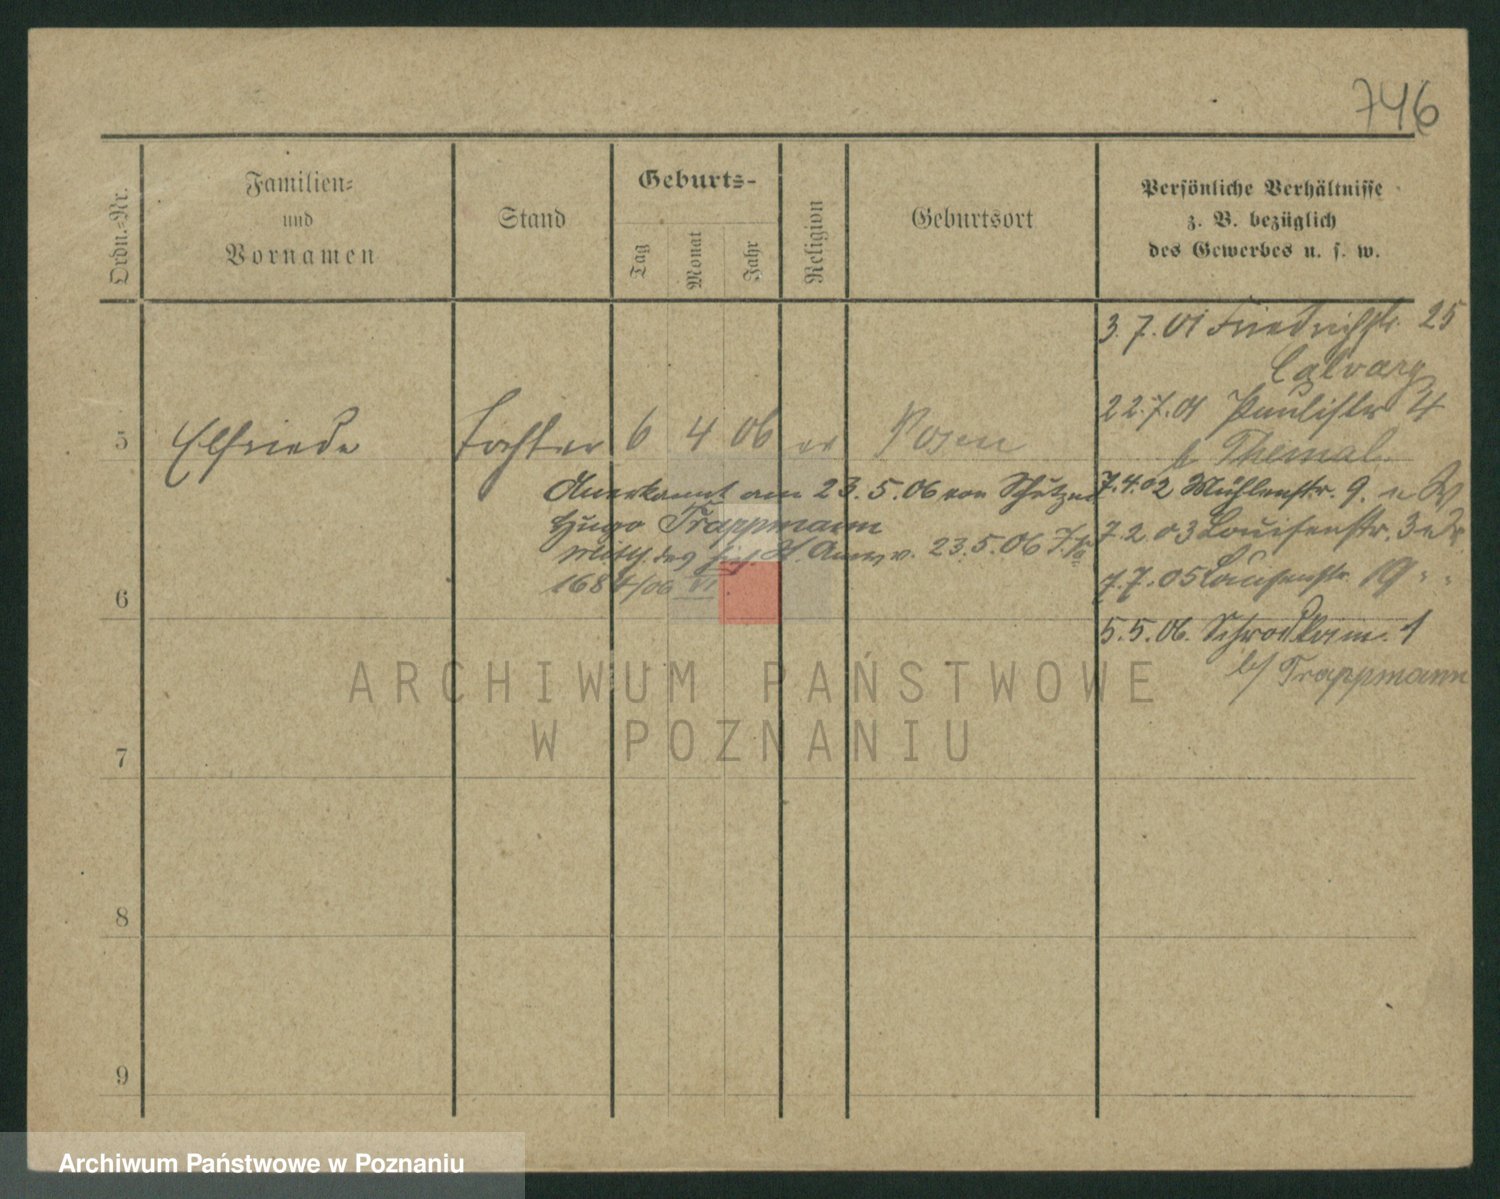 746
Ordn.-Nr.
Familien-
und
Vornamen
Stand
Geburts-
Tag
Monat
Jahr
Religion
Geburtsort
Persönliche Verhältnisse
z. B. bezüglich
des Gewerbes u. s. w.
3.7.01 Friedrichstr. 25
Calvary
22.7.01 Paulistr 4
b Themal
5 Elfriede Tochter 6 4 06 ev Posen
7.4.02 Mühlenstr. 9.
Anerkannt am 23.5.06 von Schutzm
Hugo Trappmann
7.2.03 Louisenstr. 3
Mitth. des St. Amts v. 23.5.06
1684/06 VI
7.7.05 Louisenstr. 19
6
5.5.06. Schrodkam. 1
b/ Trappmann
7
8
9
ARCHIWUM PAŃSTWOWE
W POZNANIU
Archiwum Państwowe w Poznaniu